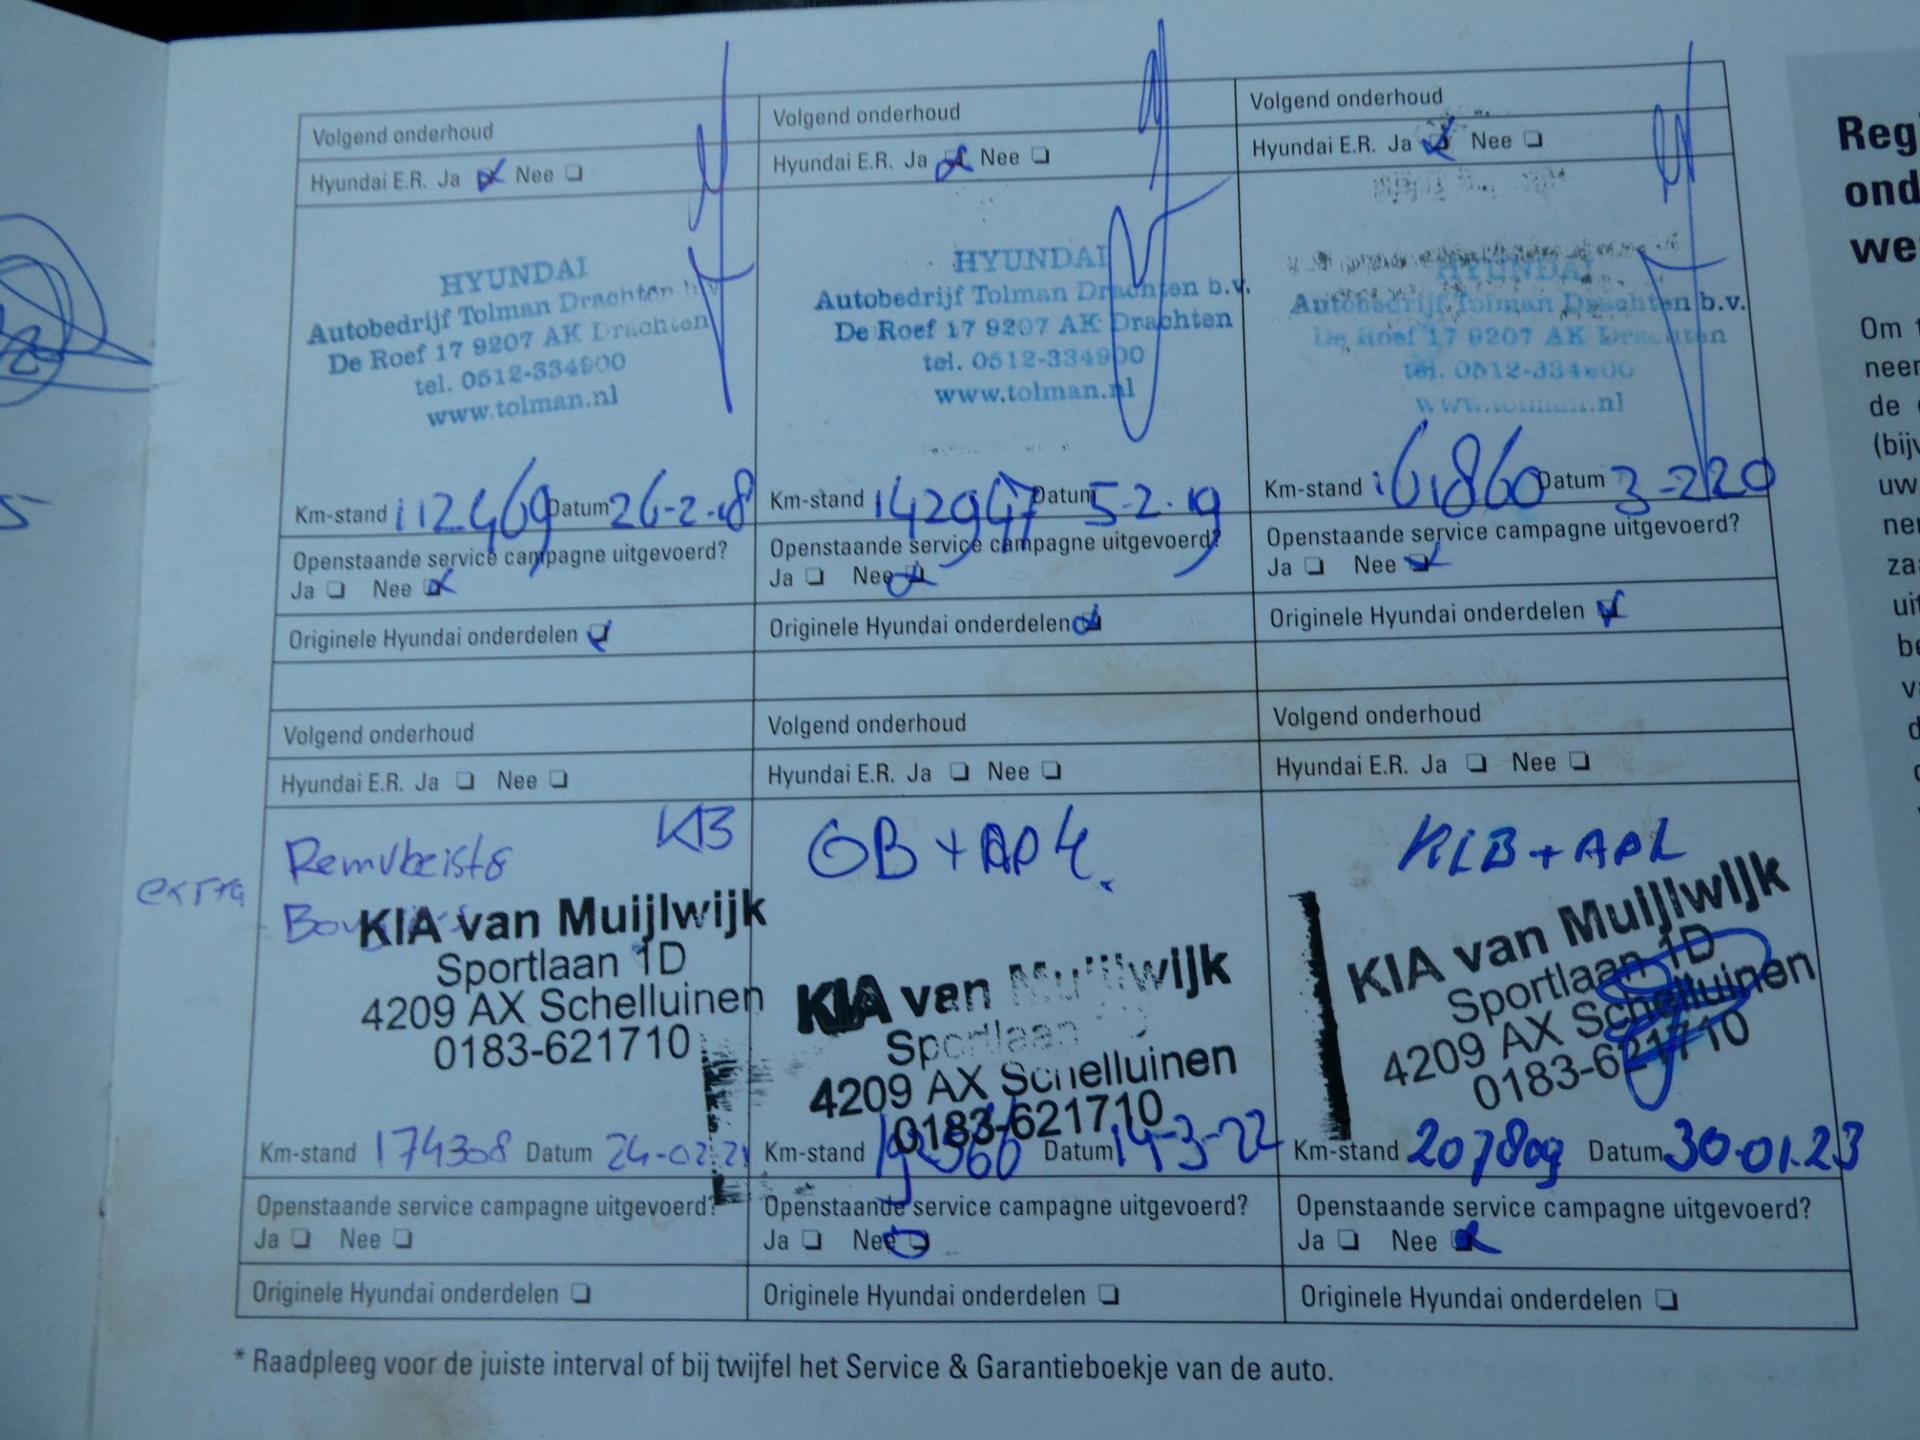 Volgend onderhoud
Hyundai E.R. Ja Nee
HYUNDAI
Autobedrijf Tolman Drachten b.v.
De Roef 17 9207 AK Drachten
tel. 0512-334900
www.tolman.nl
Km-stand 112469 Datum 26-2-18
Openstaande service campagne uitgevoerd?
Ja Nee
Originele Hyundai onderdelen
Volgend onderhoud
Hyundai E.R. Ja Nee
HYUNDAI
Autobedrijf Tolman Drachten b.v.
De Roef 17 9207 AK Drachten
tel. 0512-334900
www.tolman.nl
Km-stand 142947 Datum 5-2-19
Openstaande service campagne uitgevoerd?
Ja Nee
Originele Hyundai onderdelen
Volgend onderhoud
Hyundai E.R. Ja Nee
HYUNDAI
Autobedrijf Tolman Drachten b.v.
De Roef 17 9207 AK Drachten
tel. 0512-334900
www.tolman.nl
Km-stand 161860 Datum 3-2-20
Openstaande service campagne uitgevoerd?
Ja Nee
Originele Hyundai onderdelen
Volgend onderhoud
Hyundai E.R. Ja Nee
extra
KIA van Muijlwijk
Sportlaan 1D
4209 AX Schelluinen
0183-621710
Km-stand 174308 Datum 24-02-21
Openstaande service campagne uitgevoerd?
Ja Nee
Originele Hyundai onderdelen
Volgend onderhoud
Hyundai E.R. Ja Nee
GB + APK.
KIA van Muijlwijk
Sportlaan
4209 AX Schelluinen
0183-621710
Km-stand Datum 14-3-22
Openstaande service campagne uitgevoerd?
Ja Nee
Originele Hyundai onderdelen
Volgend onderhoud
Hyundai E.R. Ja Nee
KLB + APK
KIA van Muijlwijk
Sportlaan 1D
4209 AX Schelluinen
0183-621710
Km-stand 207809 Datum 30.01.23
Openstaande service campagne uitgevoerd?
Ja Nee
Originele Hyundai onderdelen
* Raadpleeg voor de juiste interval of bij twijfel het Service & Garantieboekje van de auto.
Om
de
(bijv
uw